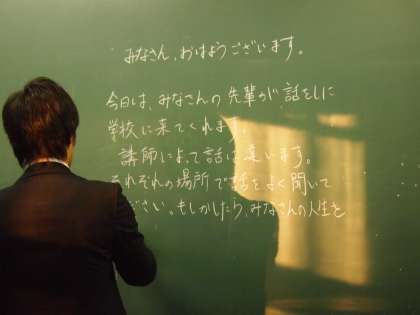 みなさん、おはようございます。
今日は、みなさんの先輩が話をしに
学校に来てくれます。
講師によって話は違います。
それぞれの場所で話をよく聞いて
ださい。もしかしたら、みなさんの人生を